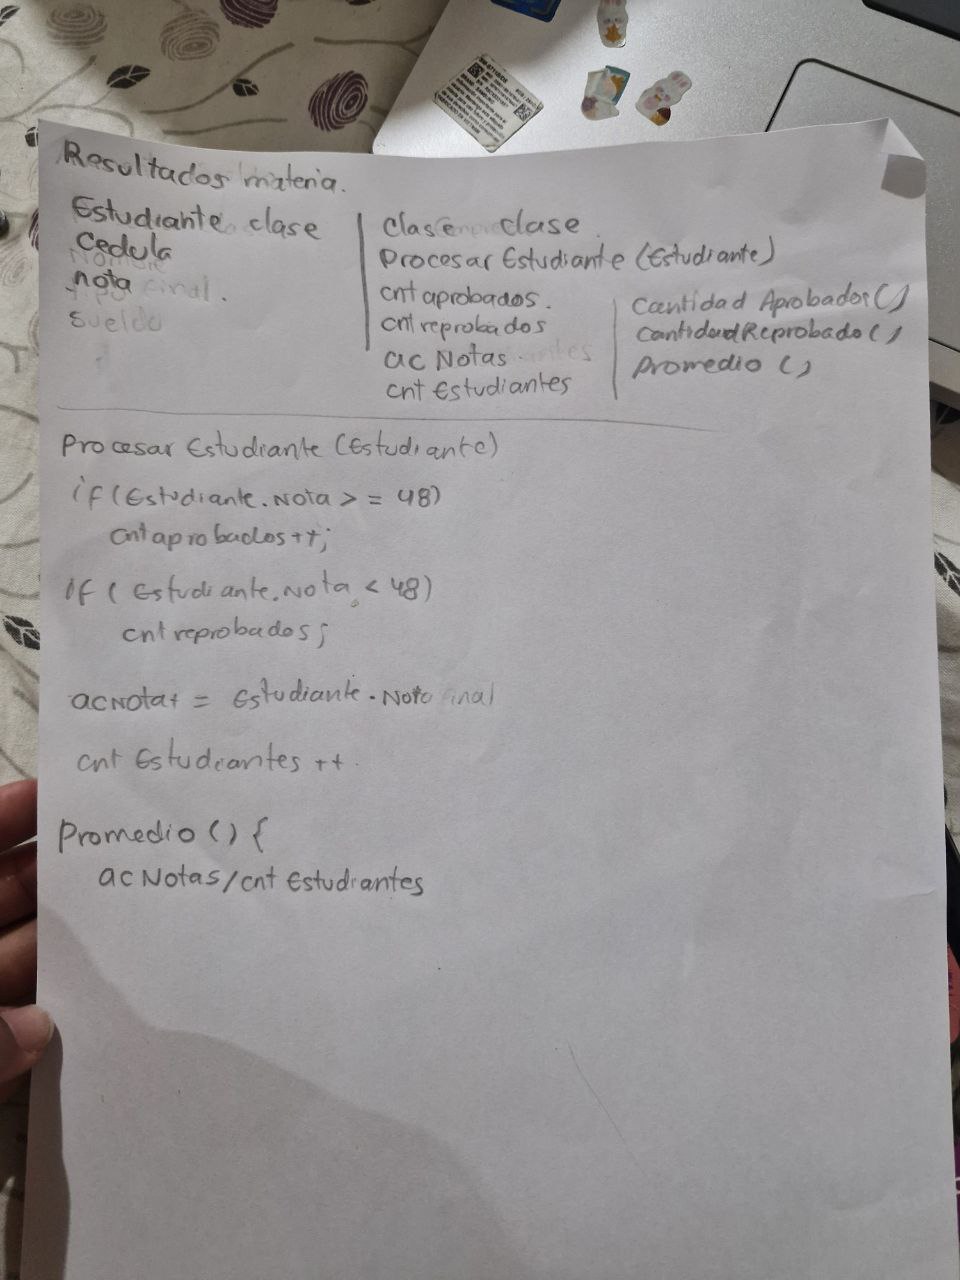 Resultados materia.
Estudiante clase
Cedula
nota
Sueldo
Clase clase
Procesar Estudiante (Estudiante)
cnt aprobados.
cnt reprobados
ac Notas
cnt Estudiantes
Cantidad Aprobados ()
cantidad Reprobado ()
Promedio ()
Procesar Estudiante (Estudiante)
if (Estudiante.Nota >= 48)
cnt aprobados ++;
if ( Estudiante.Nota < 48)
cnt reprobados;
acNota+ = Estudiante.Nota final
cnt Estudiantes ++
Promedio () {
ac Notas/cnt Estudiantes